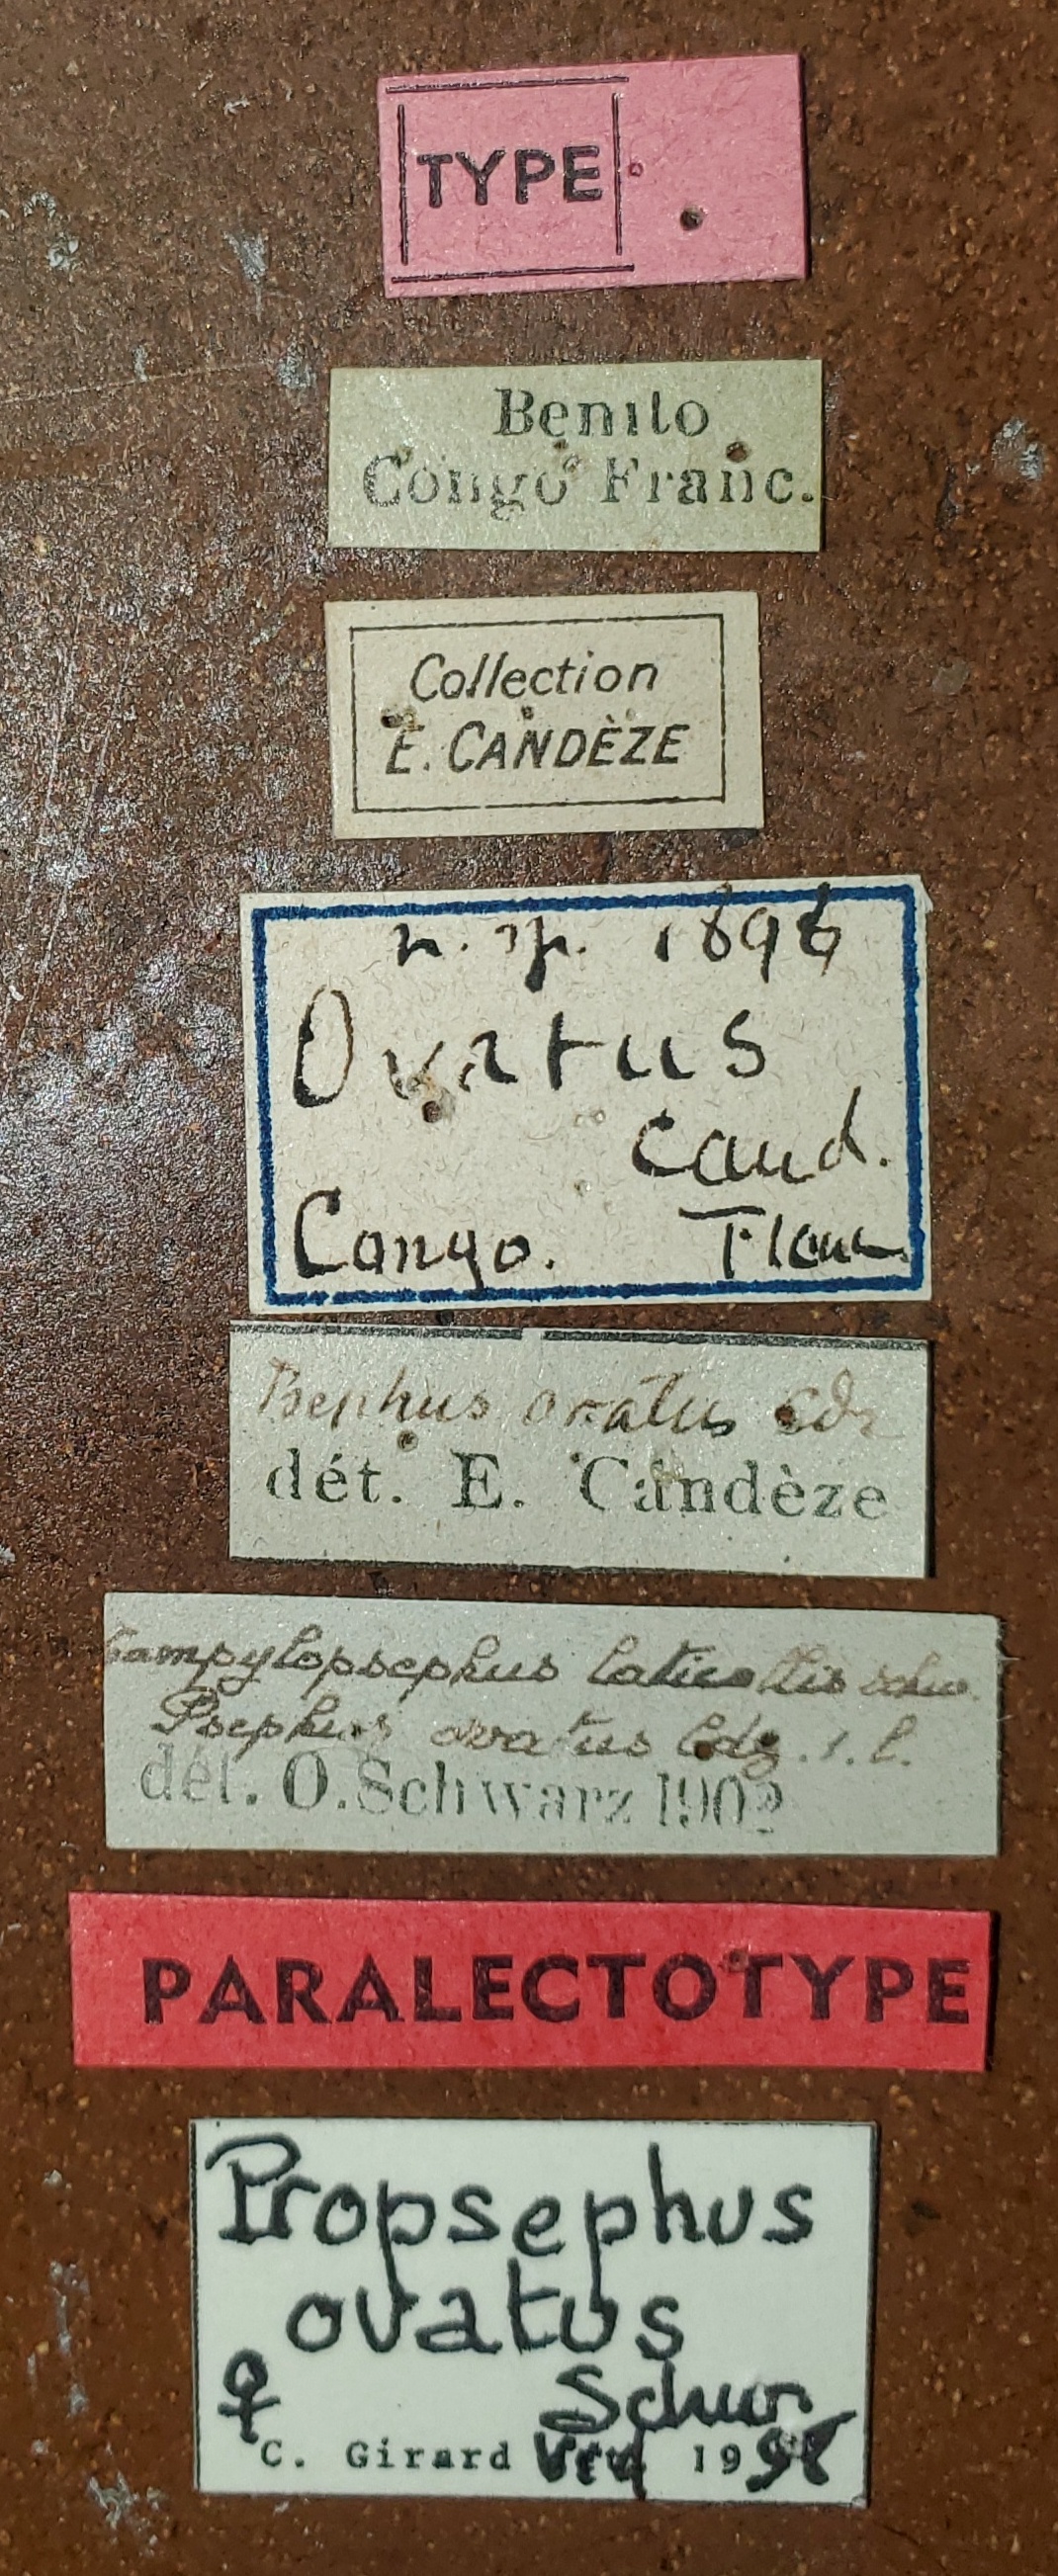 TYPE
Benito
Congo Franc.
Collection
E. CANDÈZE
n. sp. 1896
Ovatus
Cand.
Congo.
Psephus ovatus Cdz
dét. E. Candèze
Campylopsephus laticollis Schw.
Psephus ovatus Cdz. i. l.
dét. O. Schwarz 1902
PARALECTOTYPE
Propsephus
ovatus
♀ Schw
C. Girard 1998